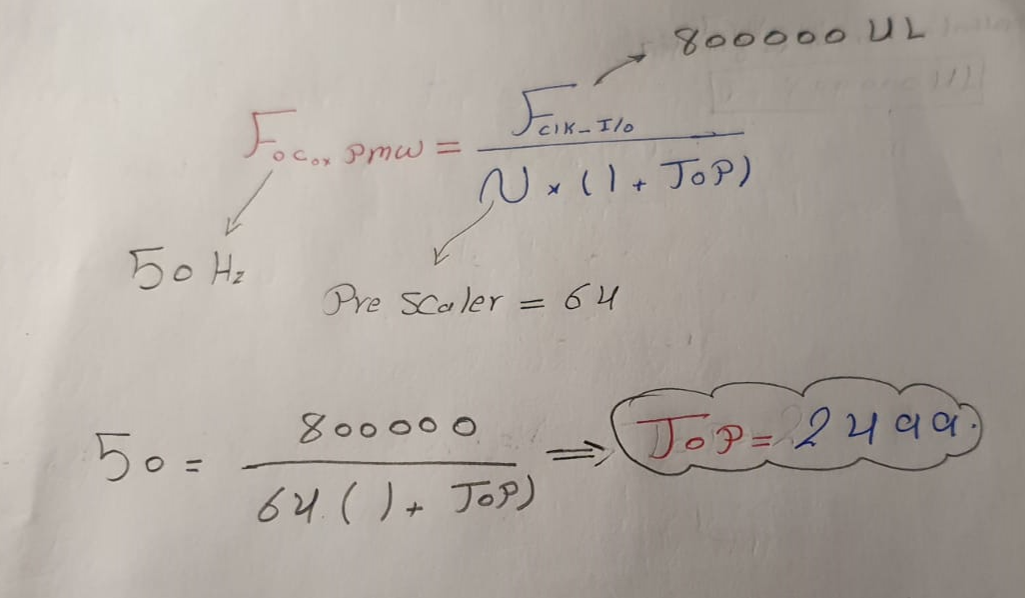 800000 UL
Focox PMW = Fclk-I/o / N × (1 + ToP)
50 Hz
Pre Scaler = 64
50 = 800000 / 64.(1 + ToP) ⇒ ToP = 2499.